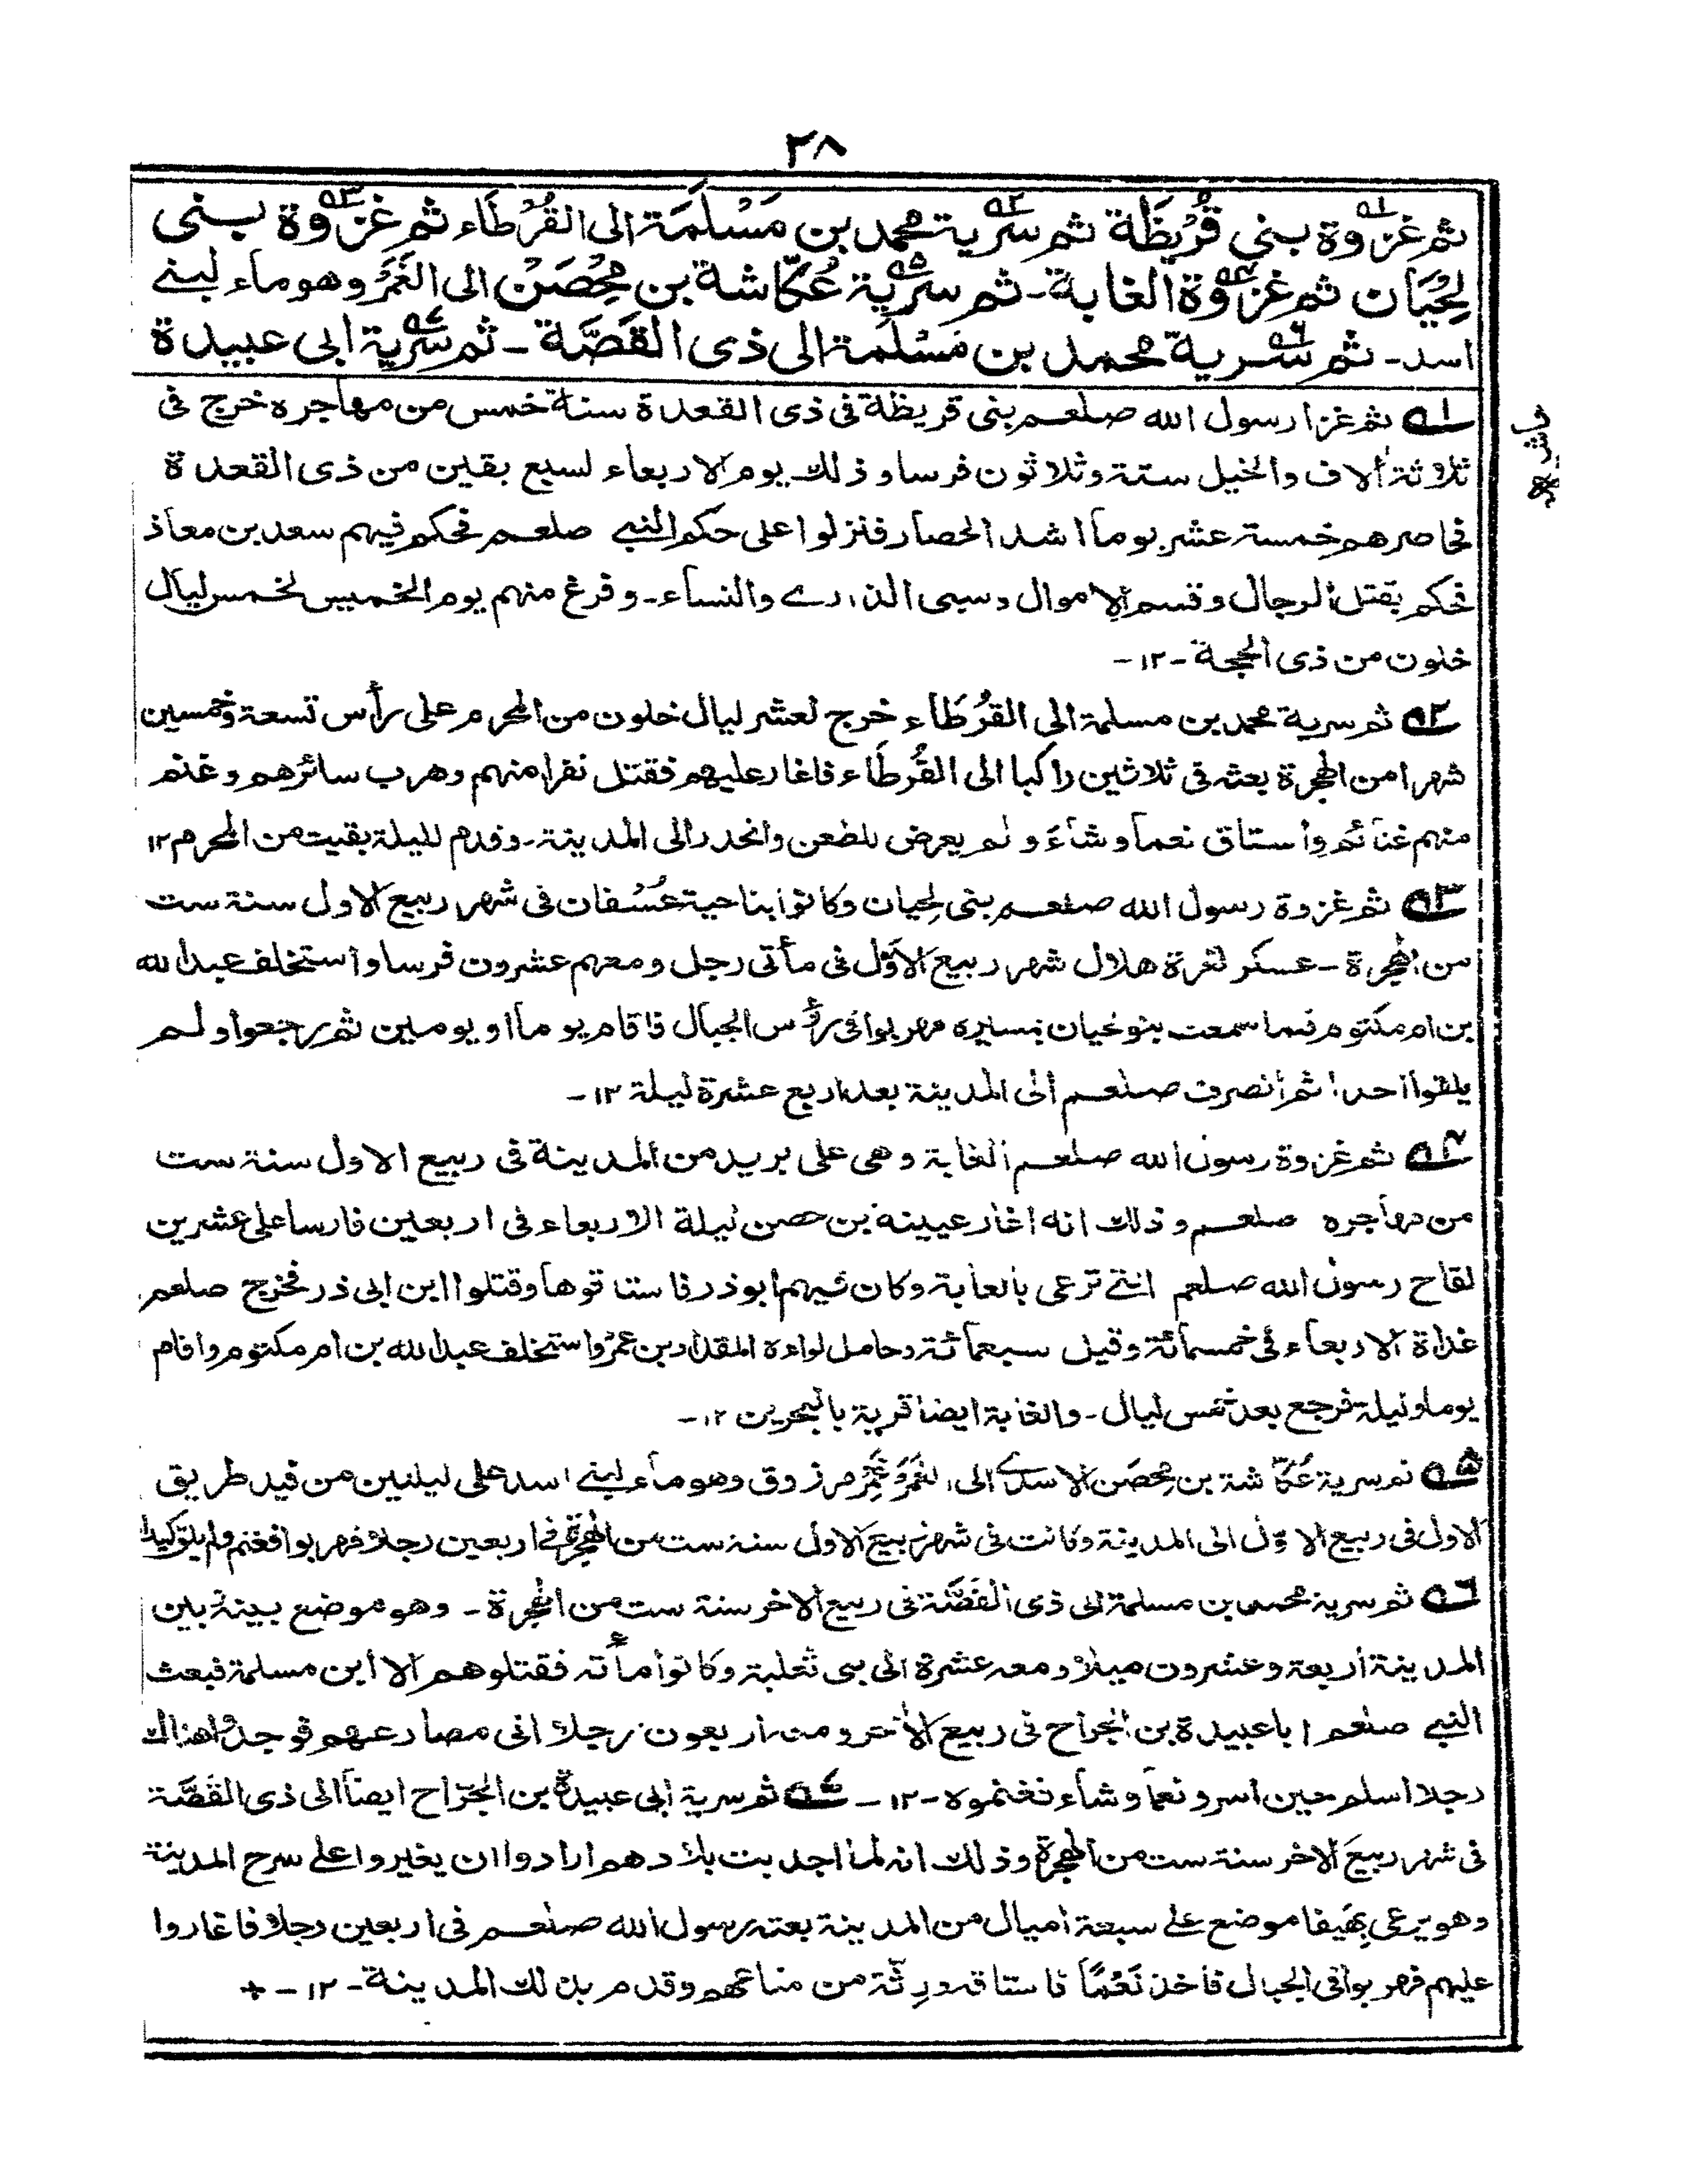 ٣٨
ثم غزوة بنى قُرَيْظَة ثم سرية محمد بن مَسْلَمَة الى القُرْطَاء ثم غزوة بنى
لِحْيَان ثم غزوة الغابة - ثم سرية عُكّاشة بن مِحْصَنْ الى الغَمْرَ وهو ماء لبنے
اسد - ثم سرية محمد بن مَسْلَمة الى ذى القَصَّة - ثم سرية ابى عبيدة
١ ثم غزا رسول الله صلعم بنى قريظة فى ذى القعدة سنة خمس من مهاجره خرج فى
ثلاثة ألاف والخيل ستة وثلاثون فرسا وذلك يوم الاربعاء لسبع بقين من ذى القعدة
فحاصرهم خمسة عشر يوماً اشد الحصار فنزلوا على حكم النبے صلعم فحكم فيهم سعد بن معاذ
فحكم بقتل الرجال وقسم الاموال وسبى الذرارے والنساء - وفرغ منهم يوم الخميس لخمس ليال
خلون من ذى الحجة - ١٢ -
٢ ثم سرية محمد بن مسلمة الى القُرْطَاء خرج لعشر ليال خلون من المحرم على رأس تسعة وخمسين
شهرا من الهجرة بعثه فى ثلاثين راكبا الى القُرطَاء فاغار عليهم فقتل نفرا منهم وهرب سائرهم وغنم
منهم غنائم وأستاق نعماً وشاءً ولم يعرض للطعن وانحدر الى المدينة - وقدم لليلة بقيت من المحرم ١٢
٣ ثم غزوة رسول الله صلعم بنى لحيان وكانوا بناحية عُسْفان فى شهر ربيع الاول سنة ست
من الهجرة - عسكر لغرة هلال شهر ربيع الاوّل فى مأتى رجل ومعهم عشرون فرسا واستخلف عبد الله
بن ام مكتوم فلما سمعت بنو لحيان بمسيره هربوا فى رؤس الجبال فاقام يوماً او يومين ثم رجعوا ولم
يلقوا احدا ثم أنصرف صلعم الى المدينة بعد اربع عشرة ليلة ١٢ -
٤ ثم غزوة رسول الله صلعم الغابة وهى على بريد من المدينة فى ربيع الاول سنة ست
من مهاجره صلعم وذلك انه اغار عيينة بن حصن ليلة الاربعاء فى اربعين فارسا على عشرين
لقاح رسول الله صلعم التے ترعى بالغابة وكان فيهم ابوذر فاستاقوها وقتلوا ابن ابى ذر فخرج صلعم
غداة الاربعاء فى خمسمائة وقيل سبعمائة وحامل لواءه المقداد بن عمرو واستخلف عبد الله بن ام مكتوم واقام
يوما وليلة فرجع بعد خمس ليال - والغابة ايضا قرية بالبحرين ١٢ -
٥ ثم سرية عُكّاشة بن مِحصَن الاسدے الى الغَمْرَ غَمْرِ مرزوق وهو ماء لبنے اسد على ليلتين من فيد طريق
الاول فى ربيع الاوّل الى المدينة وكانت فى شهر ربيع الاول سنة ست من الهجرة فے اربعين رجلا فهربوا فغنم ولم يلق كيدا
٦ ثم سرية محمد بن مسلمة الى ذى القَصَّة فى ربيع الاخر سنة ست من الهجرة - وهو موضع بينه وبين
المدينة أربعة وعشرون ميلا ومعه عشرة الى بنى ثعلبة وكانوا مأته فقتلوهم الا أبن مسلمة فبعث
النبے صلعم ابا عبيدة بن الجراح فى ربيع الأخر ومعه أربعون رجلا الى مصارعهم فوجدوا هناك
رجلا اسلم حين اسر ونعما وشاء فغنموه - ١٢ - ٧ ثم سرية ابى عبيدة بن الجرّاح ايضاً الى ذى القَصَّة
فى شهر ربيع الاخر سنة ست من الهجرة وذلك انه لما اجدبت بلادهم ارادوا ان يغيروا علے سرح المدينة
وهو يرعى بِهَيفا موضع علے سبعة اميال من المدينة بعثه رسول الله صلعم فى اربعين رجلا فاغاروا
عليهم فهربوا فى الجبال فاخذ نَعَمًا فاستاقه ورِثّة من متاعهم وقدم بذلك المدينة - ١٢ - +